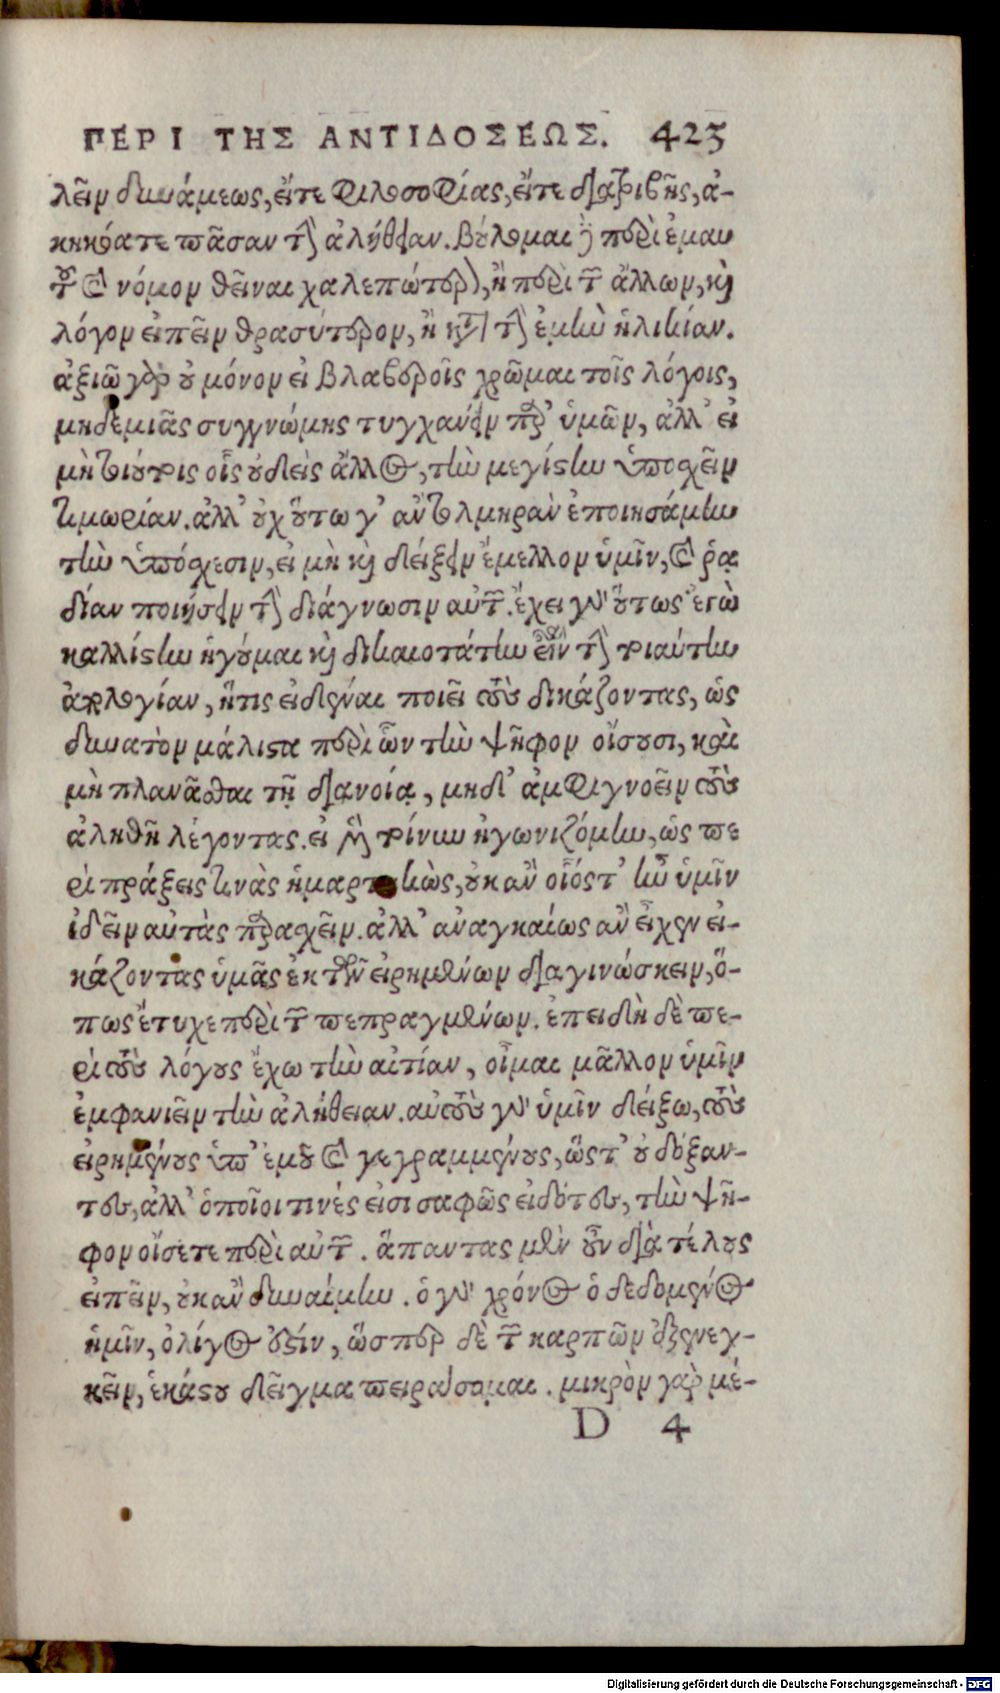 ΠΕΡΙ ΤΗΣ ΑΝΤΙΔΟΣΕΩΣ. 425
λεῖν δυνάμεως, εἴτε φιλοσοφίας, εἴτε διατριβῆς, ἀ-
κηκόατε πᾶσαν τὴν ἀλήθειαν. βούλομαι δὲ περὶ ἐμαυ
τοῦ καὶ νόμον θεῖναι χαλεπώτερον, ἢ περὶ τῶν ἄλλων, καὶ
λόγον εἰπεῖν θρασύτερον, ἢ κατὰ τὴν ἐμὴν ἡλικίαν.
ἀξιῶ γὰρ οὐ μόνον εἰ βλαβεροῖς χρῶμαι τοῖς λόγοις,
μηδεμιᾶς συγγνώμης τυγχανειν παρ' ὑμῶν, ἀλλ' εἰ
μὴ τοιούτοις οἵοις οὐδεὶς ἄλλος, τὴν μεγίστην ὑποσχεῖν
τιμωρίαν. ἀλλ' οὐχ οὕτω γ' ἂν τολμηρὰν ἐποιησάμην
τὴν ὑπόσχεσιν, εἰ μὴ καὶ δείξειν ἔμελλον ὑμῖν, καὶ ῥα
δίαν ποιήσειν τὴν διάγνωσιν αὐτῶν. ἔχει γὰρ οὕτως· ἐγὼ
καλλίστην ἡγοῦμαι καὶ δικαιοτάτην εἶναι τὴν τοιαύτην
ἀπολογίαν, ἥτις εἰδέναι ποιεῖ τοὺς δικάζοντας, ὡς
δυνατὸν μάλιστα περὶ ὧν τὴν ψῆφον οἴσουσι, καὶ
μὴ πλανᾶσθαι τῇ διανοίᾳ, μηδ' ἀμφιγνοεῖν τοὺς
ἀληθῆ λέγοντας. εἰ μὲν τοίνυν ἠγωνιζόμην, ὡς πε
ρὶ πράξεις τινὰς ἡμαρτηκὼς, οὐκ ἂν οἷός τ' ἦν ὑμῖν
ἰδεῖν αὐτὰς παρασχεῖν. ἀλλ' ἀναγκαίως ἂν εἶχεν εἰ-
κάζοντας ὑμᾶς ἐκ τῶν εἰρημένων διαγινώσκειν, ὅ-
πως ἔτυχε περὶ τῶν πεπραγμένων. ἐπειδὴ δὲ πε-
ρὶ τοὺς λόγους ἔχω τὴν αἰτίαν, οἶμαι μᾶλλον ὑμῖν
ἐμφανιεῖν τὴν ἀλήθειαν. αὐτοὺς γὰρ ὑμῖν δείξω, τοὺς
εἰρημένους ὑπ' ἐμοῦ καὶ γεγραμμένους, ὥστ' οὐ δοξαν-
τες, ἀλλ' ὁποῖοι τινές εἰσι σαφῶς εἰδότες, τὴν ψῆ-
φον οἴσετε περὶ αὐτῶν. ἅπαντας μὲν οὖν διὰ τέλους
εἰπεῖν, οὐκ ἂν δυναίμην. ὁ γὰρ χρόνος ὁ δεδομένος
ἡμῖν, ὀλίγος ἐστίν, ὥσπερ δὲ τῶν καρπῶν ἐξενεγ-
κεῖν, ἑκάστου δεῖγμα πειράσομαι. μικρὸν γὰρ μέ-
D 4
Digitalisierung gefördert durch die Deutsche Forschungsgemeinschaft - DFG